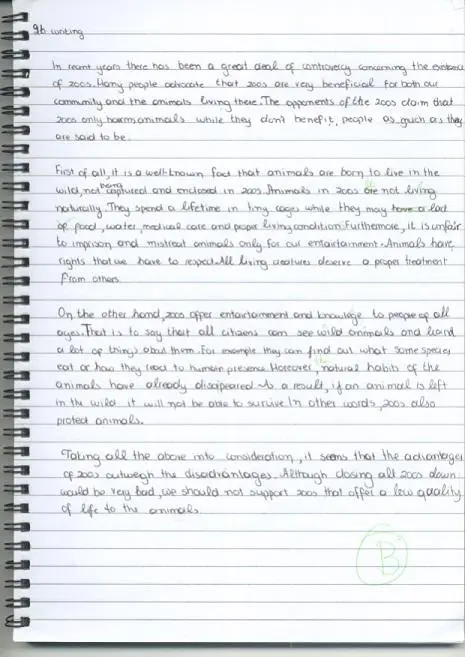 9b writing
In recent years there has been a great deal of controversy concerning the existence
of zoos. Many people advocate that zoos are very beneficial for both our
community and the animals living there. The opponents of the zoos claim that
zoos only harm animals while they don't benefit people as much as they
are said to be.
First of all, it is a well-known fact that animals are born to live in the
wild, not being captured and enclosed in zoos. Animals in zoos are not living
naturally. They spend a lifetime in tiny cages while they may have a lack
of food, water, medical care and proper living condition. Furthermore, it is unfair
to imprison and mistreat animals only for our entairtainment. Animals have
rights that we have to respect. All living creatures deserve a proper treatment
from others.
On the other hand, zoos offer entairtainment and knowledge to people of all
ages. That is to say that all citizens can see wild animals and learn
a lot of things about them. For example they can find out what some species
eat or how they react to human presence. Moreover, natural habits of the
animals have already disapeared. As a result, if an animal is left
in the wild it will not be able to survive. In other words, zoos also
protect animals.
Taking all the above into consideration, it seems that the advantages
of zoos outweigh the disadvantages. Although closing all zoos down
would be very bad, we should not support zoos that offer a low quality
of life to the animals.
B